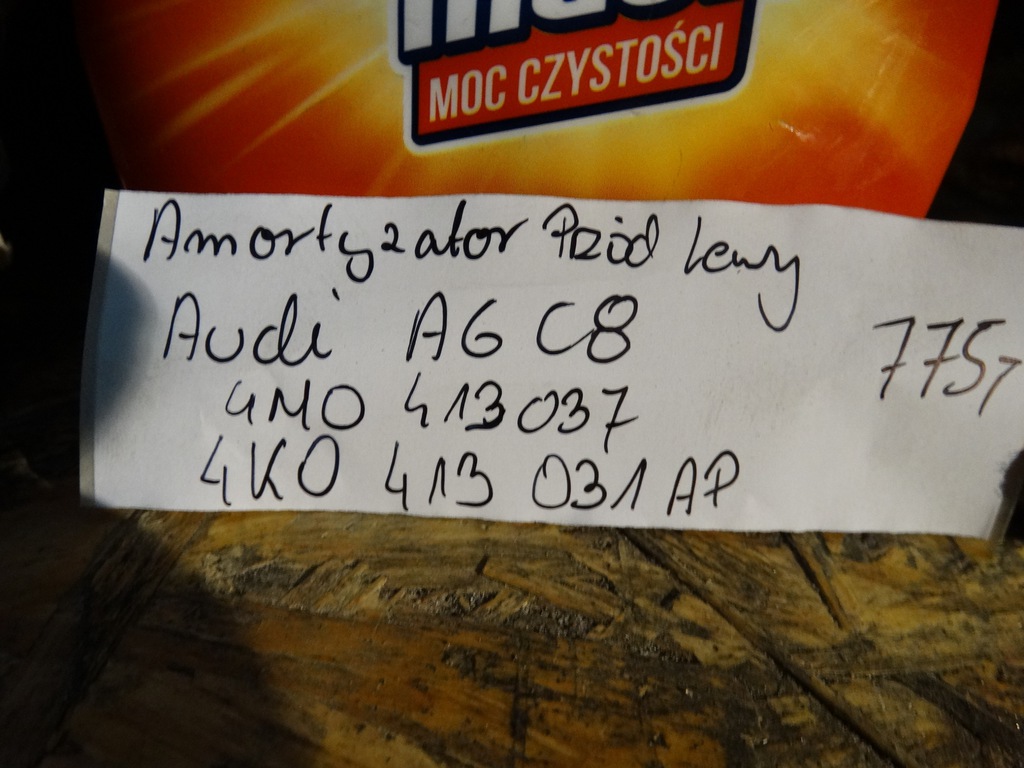 MOC CZYSTOŚCI
Amortyzator Przód Lewy
Audi A6 C8
775,-
4M0 413 037
4K0 413 031 AP